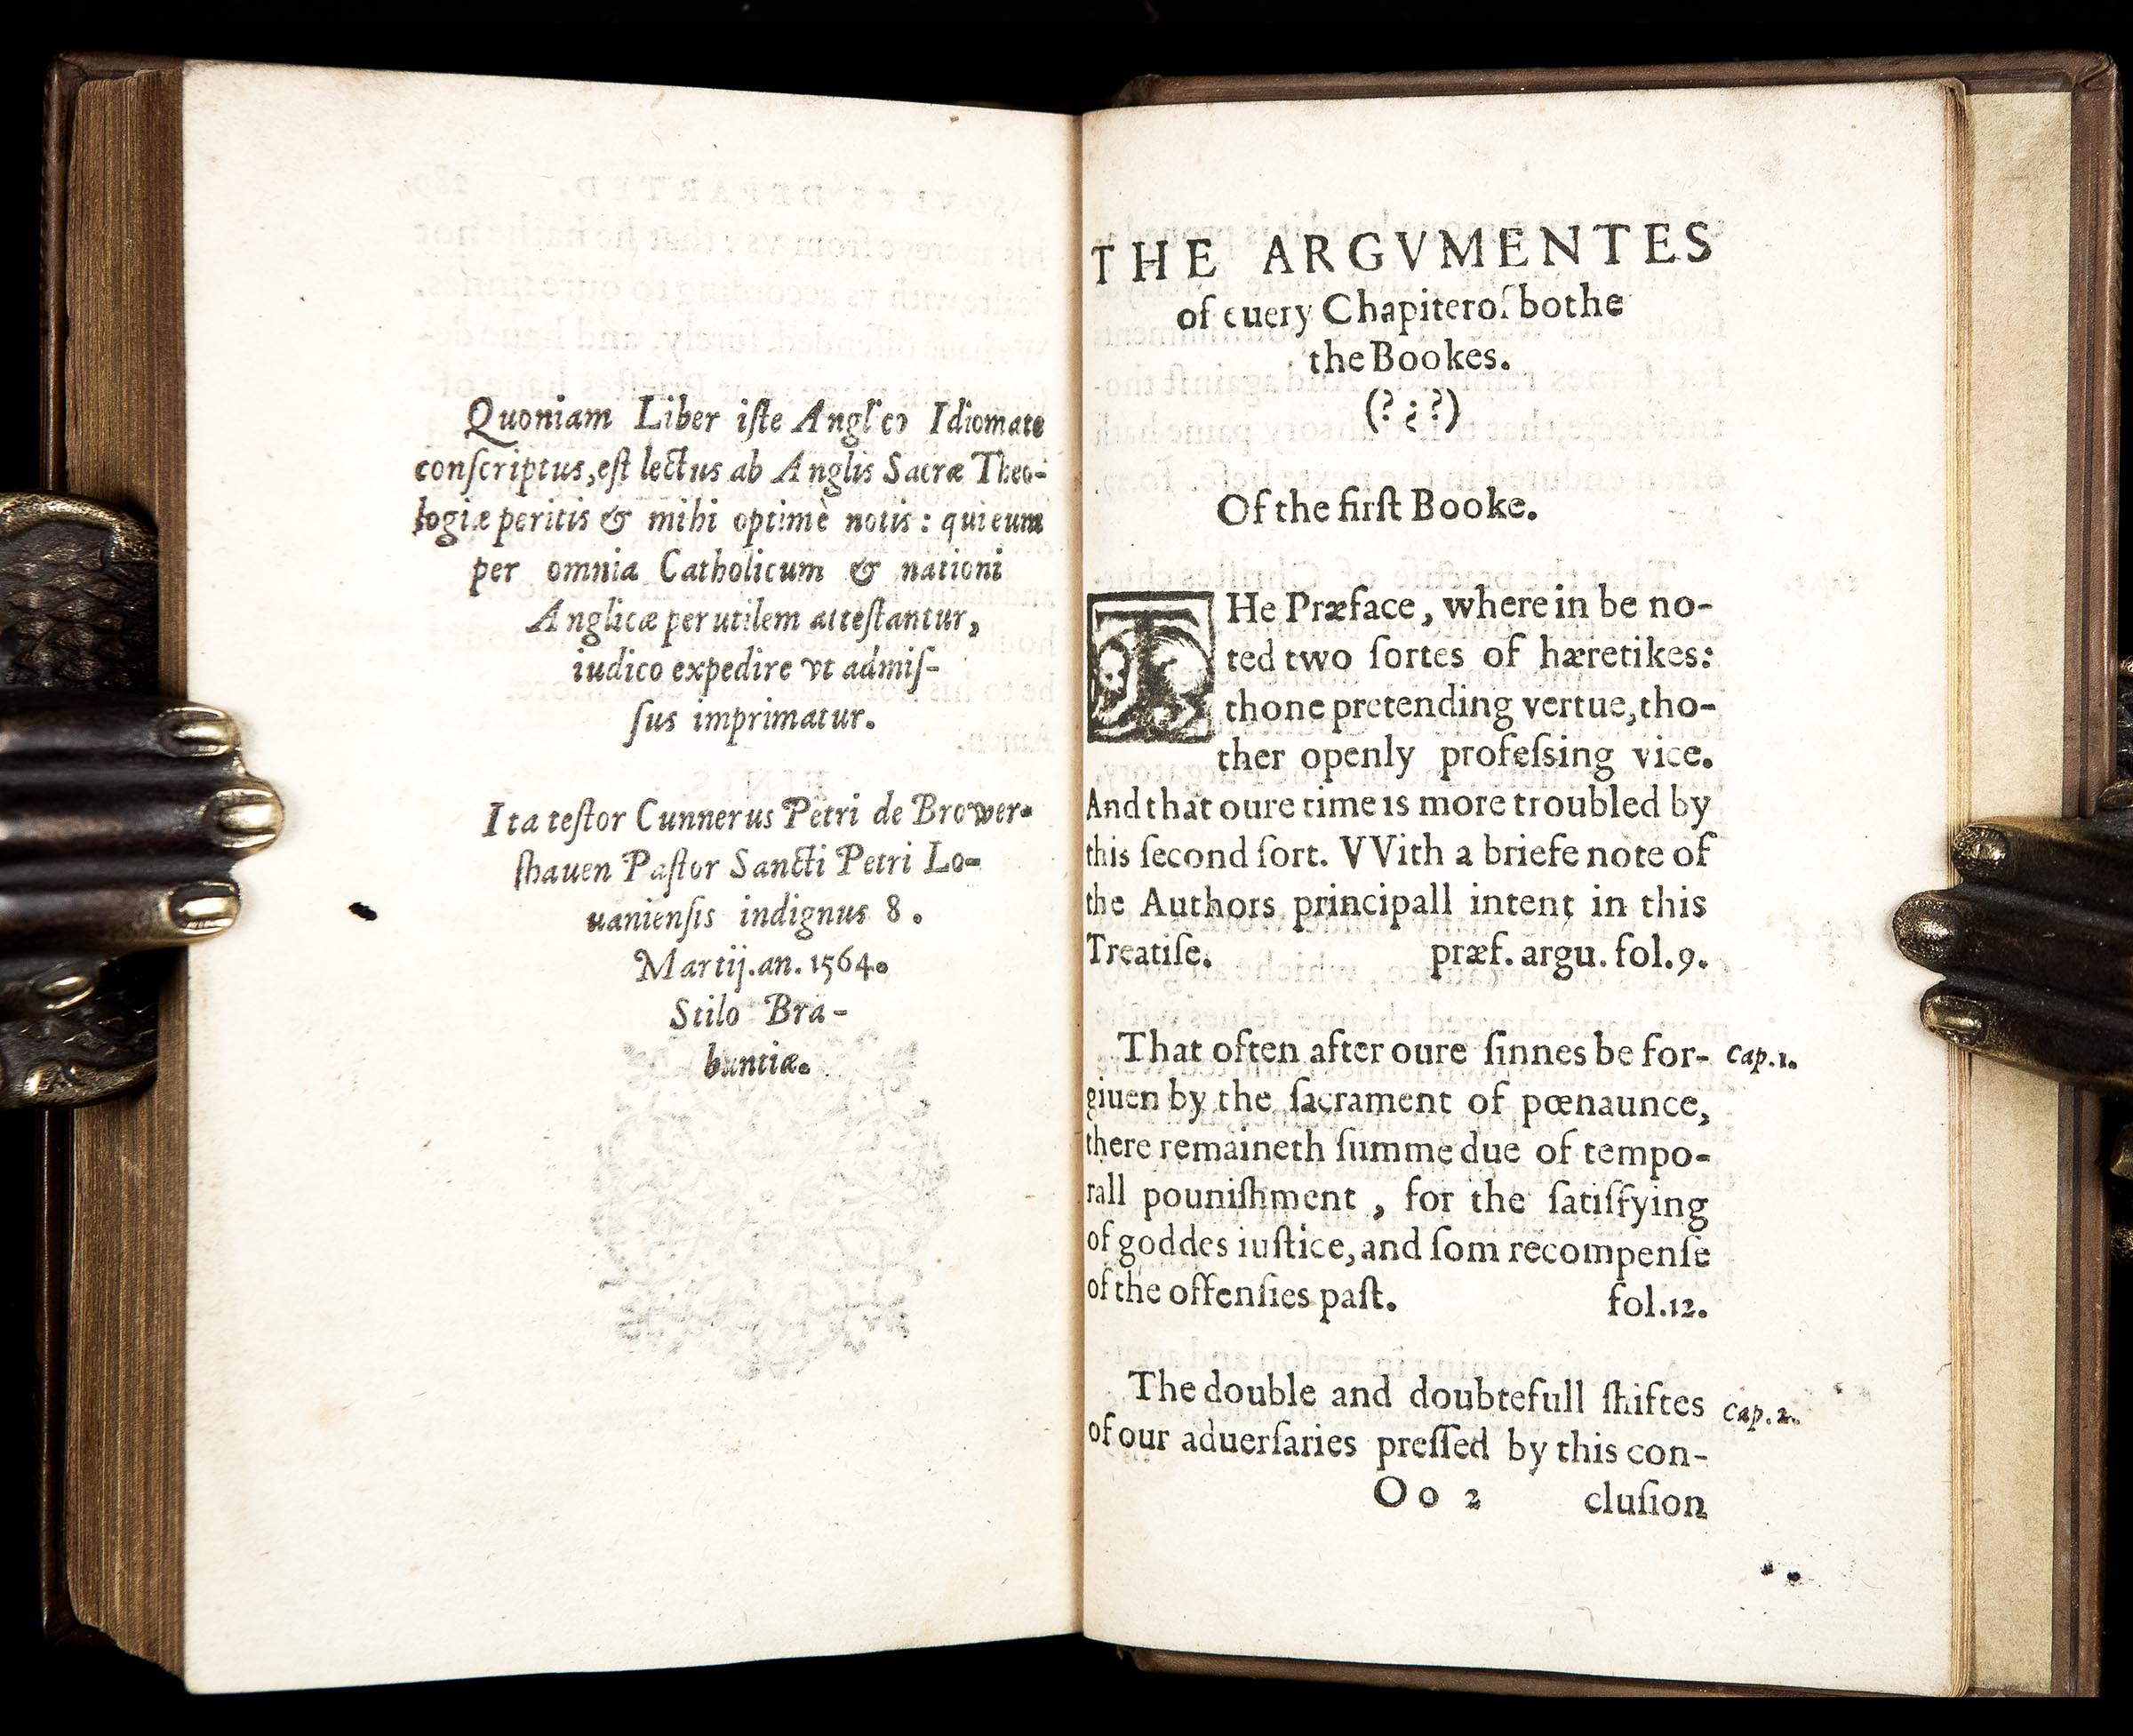 Quoniam Liber iſte Anglico Idiomate
conſcriptus, eſt lectus ab Anglis Sacræ Theo-
logiæ peritis & mihi optimè notis: qui eum
per omnia Catholicum & nationi
Anglicæ perutilem atteſtantur,
iudico expedire vt admiſ-
ſus imprimatur.
Ita teſtor Cunnerus Petri de Brower-
ſhauen Paſtor Sancti Petri Lo-
uanienſis indignus 8.
Martij. an. 1564.
Stilo Bra-
bantiæ.
THE ARGVMENTES
of euery Chapiter of bothe
the Bookes.
(?¿?)
Of the firſt Booke.
THe Præface, where in be no-
ted two ſortes of hæretikes:
thone pretending vertue, tho-
ther openly profeſsing vice.
And that oure time is more troubled by
this ſecond ſort. VVith a briefe note of
the Authors principall intent in this
Treatiſe. præf. argu. fol. 9.
That often after oure ſinnes be for- Cap. 1.
giuen by the ſacrament of pœnaunce,
there remaineth ſumme due of tempo-
rall pouniſhment, for the ſatiſfying
of goddes iuſtice, and ſom recompenſe
of the offenſies paſt. fol. 12.
The double and doubtefull ſhiftes Cap. 2.
of our aduerſaries preſſed by this con-
Oo 2 cluſion